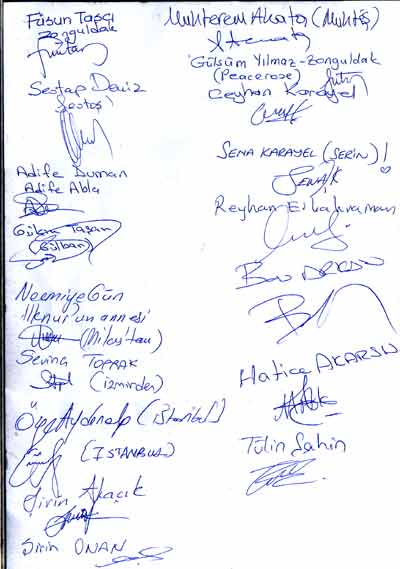 Füsun Taşçı
Zonguldak
Sertap Deniz
Sertoş
Adife Duman
Adife Abla
Gülban
Necmiye Gün
İlknur'un annesi
(Milas'tan)
Sevinç TOPRAK
(izmirden)
Özge Aydınalp (istanbul)
(ISTANBUL)
Şirin
Şirin ONAN
Muhterem Akataş (Muhtiş)
Gülsüm Yılmaz-Zonguldak
(Peacerose)
Ceyhan Karayel
SENA KARAYEL (SERİN)!
Reyhan
Hatice AKARSU
Tülin Şahin